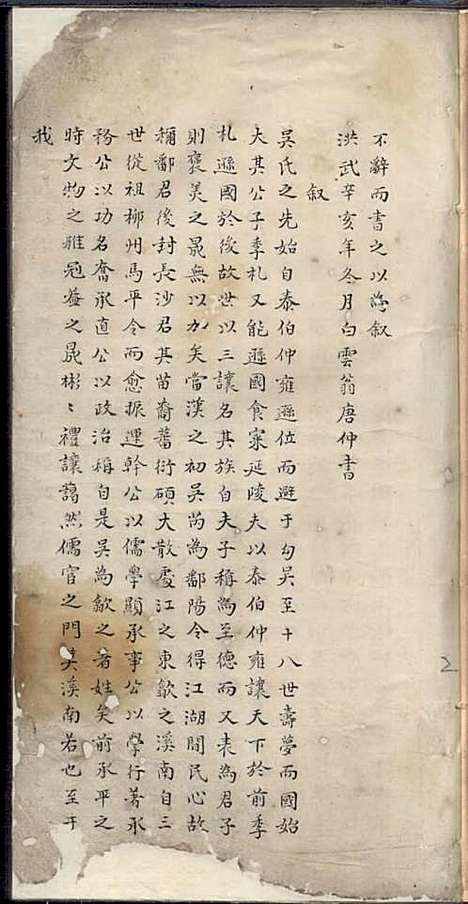 不辭而書之以為敘
洪武辛亥年冬月白雲翁唐仲書
敘
吳氏之先始自泰伯仲雍遜位而避于勾吳至十八世壽夢而國始
大其公子季札又能遜國食寀延陵夫以泰伯仲雍讓天下於前季
札遜國於後故世以三讓名其族自夫子稱為至德而又表為君子
則褒美之晁無以加矣當漢之初吳芮為鄱陽令得江湖間民心故
稱鄱君後封長沙君其苗裔蕃衍碩大散處江之東歙之溪南自三
世從祖柳州馬平令而愈振運幹公以儒學顯承事公以學行著承
務公以功名奮承直公以政治稱自是吳為歙之著姓矣前承平之
時文物之雅冠蓋之晁彬〻禮讓藹然儒官之門吳溪南若也至于
我
2